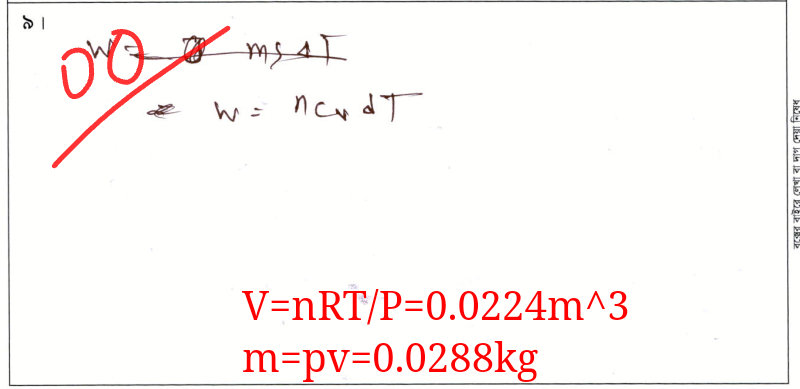 ৯।
W = msΔT
00
W = nCv dT
V=nRT/P=0.0224m^3
m=pv=0.0288kg
বক্সের বাইরে লেখা বা দাগ দেয়া নিষেধ